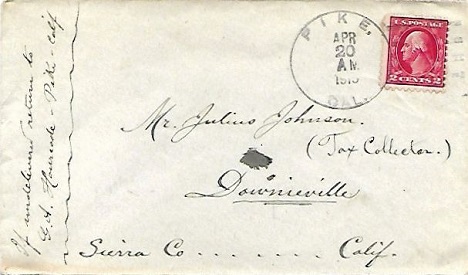 If undelivered return to
G.A. - Pike - Calif
PIKE,
APR
20
A M
CAL.
U.S. POSTAGE
2 CENTS 2
Mr. Julius Johnson.
(Tax Collector.)
Downieville
Sierra Co ....... Calif.